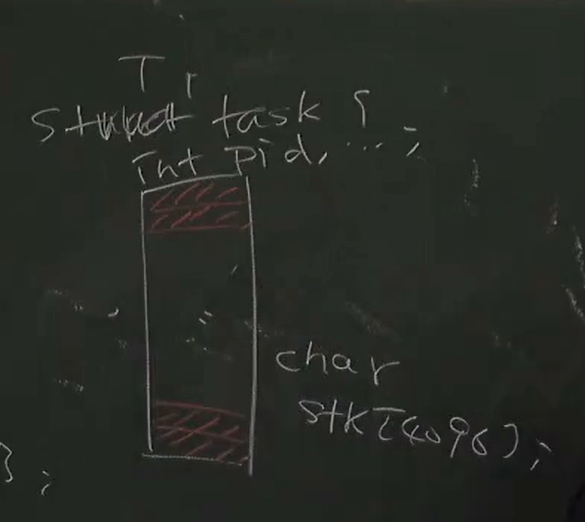 T1
struct task {
int pid, ...;
char
stk[4096];
};